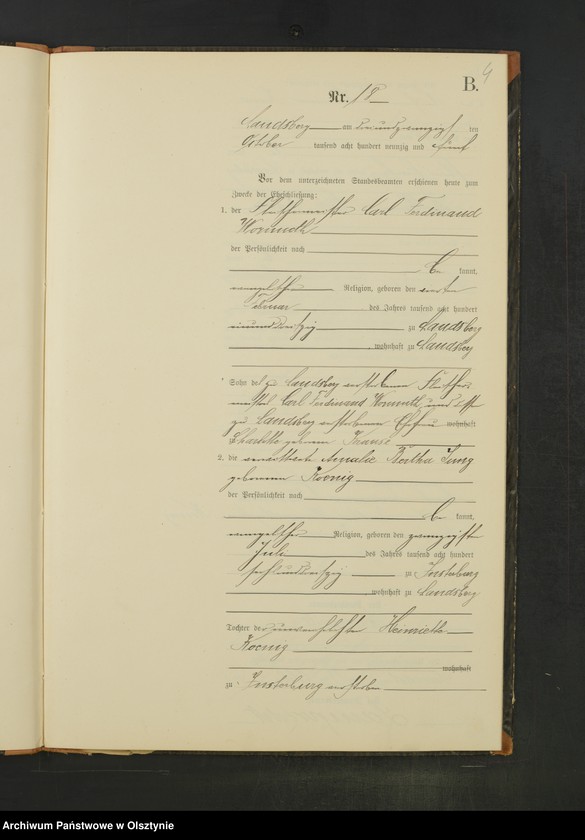 B. 4
Nr. 18
Landsberg am ten
October tausend acht hundert neunzig und fünf
Vor dem unterzeichneten Standesbeamten erschienen heute zum
Zwecke der Eheschließung:
1. der Fleischermeister Carl Ferdinand
Wormuth
der Persönlichkeit nach
be kannt,
evangelischer Religion, geboren den ersten
des Jahres tausend acht hundert
zu Landsberg
, wohnhaft zu Landsberg
Sohn des zu Landsberg verstorbenen Fleischer-
meisters Carl Ferdinand Wormuth und
zu Landsberg verstorbenen Ehefrau wohnhaft
Charlotte geborene Krause
2. die verwittwete Amalie Bertha Jung
geborene Koenig
der Persönlichkeit nach
be kannt,
evangelischer Religion, geboren den zwanzigsten
Juli des Jahres tausend acht hundert
zu Insterburg
, wohnhaft zu Landsberg
Tochter der unverehelichten Henriette
Koenig
wohnhaft
zu Insterburg verstorben
Archiwum Państwowe w Olsztynie